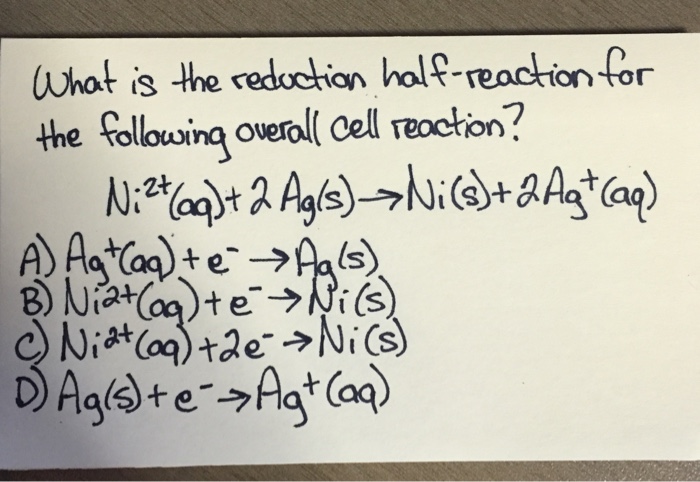 What is the reduction half-reaction for
the following overall cell reaction?
Ni²⁺(aq) + 2 Ag(s) → Ni(s) + 2Ag⁺(aq)
A) Ag⁺(aq) + e⁻ → Ag(s)
B) Ni2+(aq) + e⁻ → Ni(s)
C) Ni²⁺(aq) + 2e⁻ → Ni(s)
D) Ag(s) + e⁻ → Ag⁺(aq)